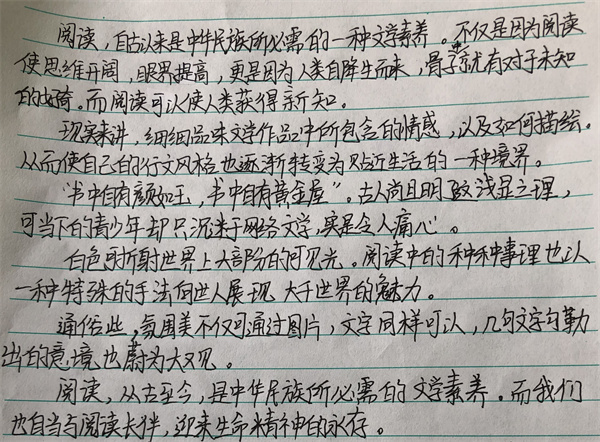 阅读，自古以来是中华民族所必需的一种文学素养。不仅是因为阅读
使思维开阔，眼界提高，更是因为人类自降生而来，骨子就有对于未知
的好奇。而阅读可以使人类获得新知。
现实来讲，细细品味文学作品中所包含的情感，以及如何描绘。
从而使自己的行文风格也逐渐转变为贴近生活的一种境界。
“书中自有颜如玉，书中自有黄金屋”。古人尚且明致浅显之理，
可当下的青少年却只沉迷于网络文学，实是令人痛心。
白色可折射世界上大部份的可见光。阅读中的种种事理也以
一种特殊的手法向世人展现大于世界的魅力。
通俗些，氛围美不仅可通过图片，文字同样可以，几句文字勾勒
出的意境也蔚为大观。
阅读，从古至今，是中华民族所必需的文学素养。而我们
也自当与阅读长伴，迎来生命精神的永存。